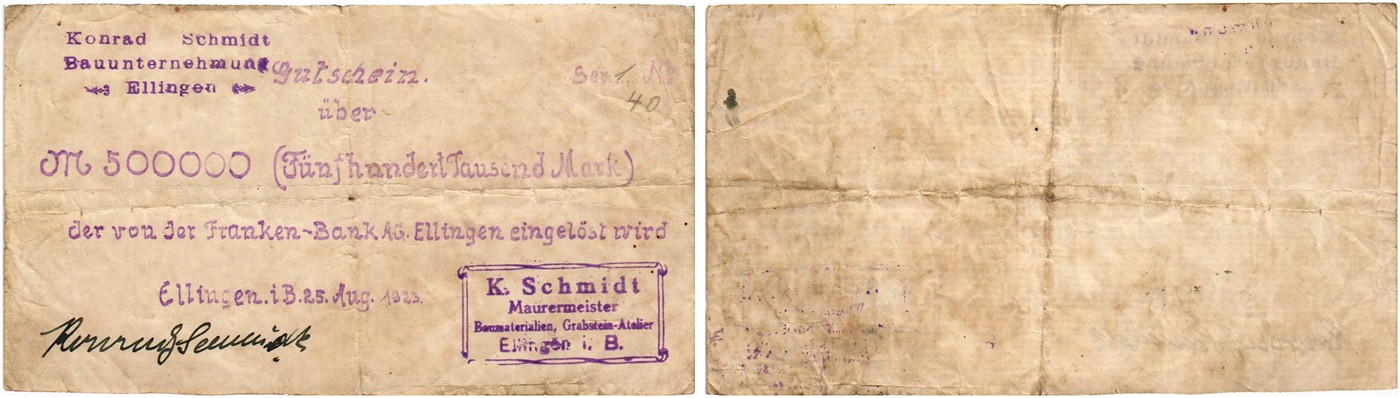 Konrad Schmidt
Bauunternehmung
Ellingen
Gutschein.
Ser. 1 No
40
über
M 500000 (Fünfhundert Tausend Mark)
der von der Franken-Bank AG. Ellingen eingelöst wird
Ellingen. i B. 25. Aug. 1923.
Konrad Schmidt
K. Schmidt
Maurermeister
Baumaterialien, Grabstein-Atelier
Ellingen i. B.